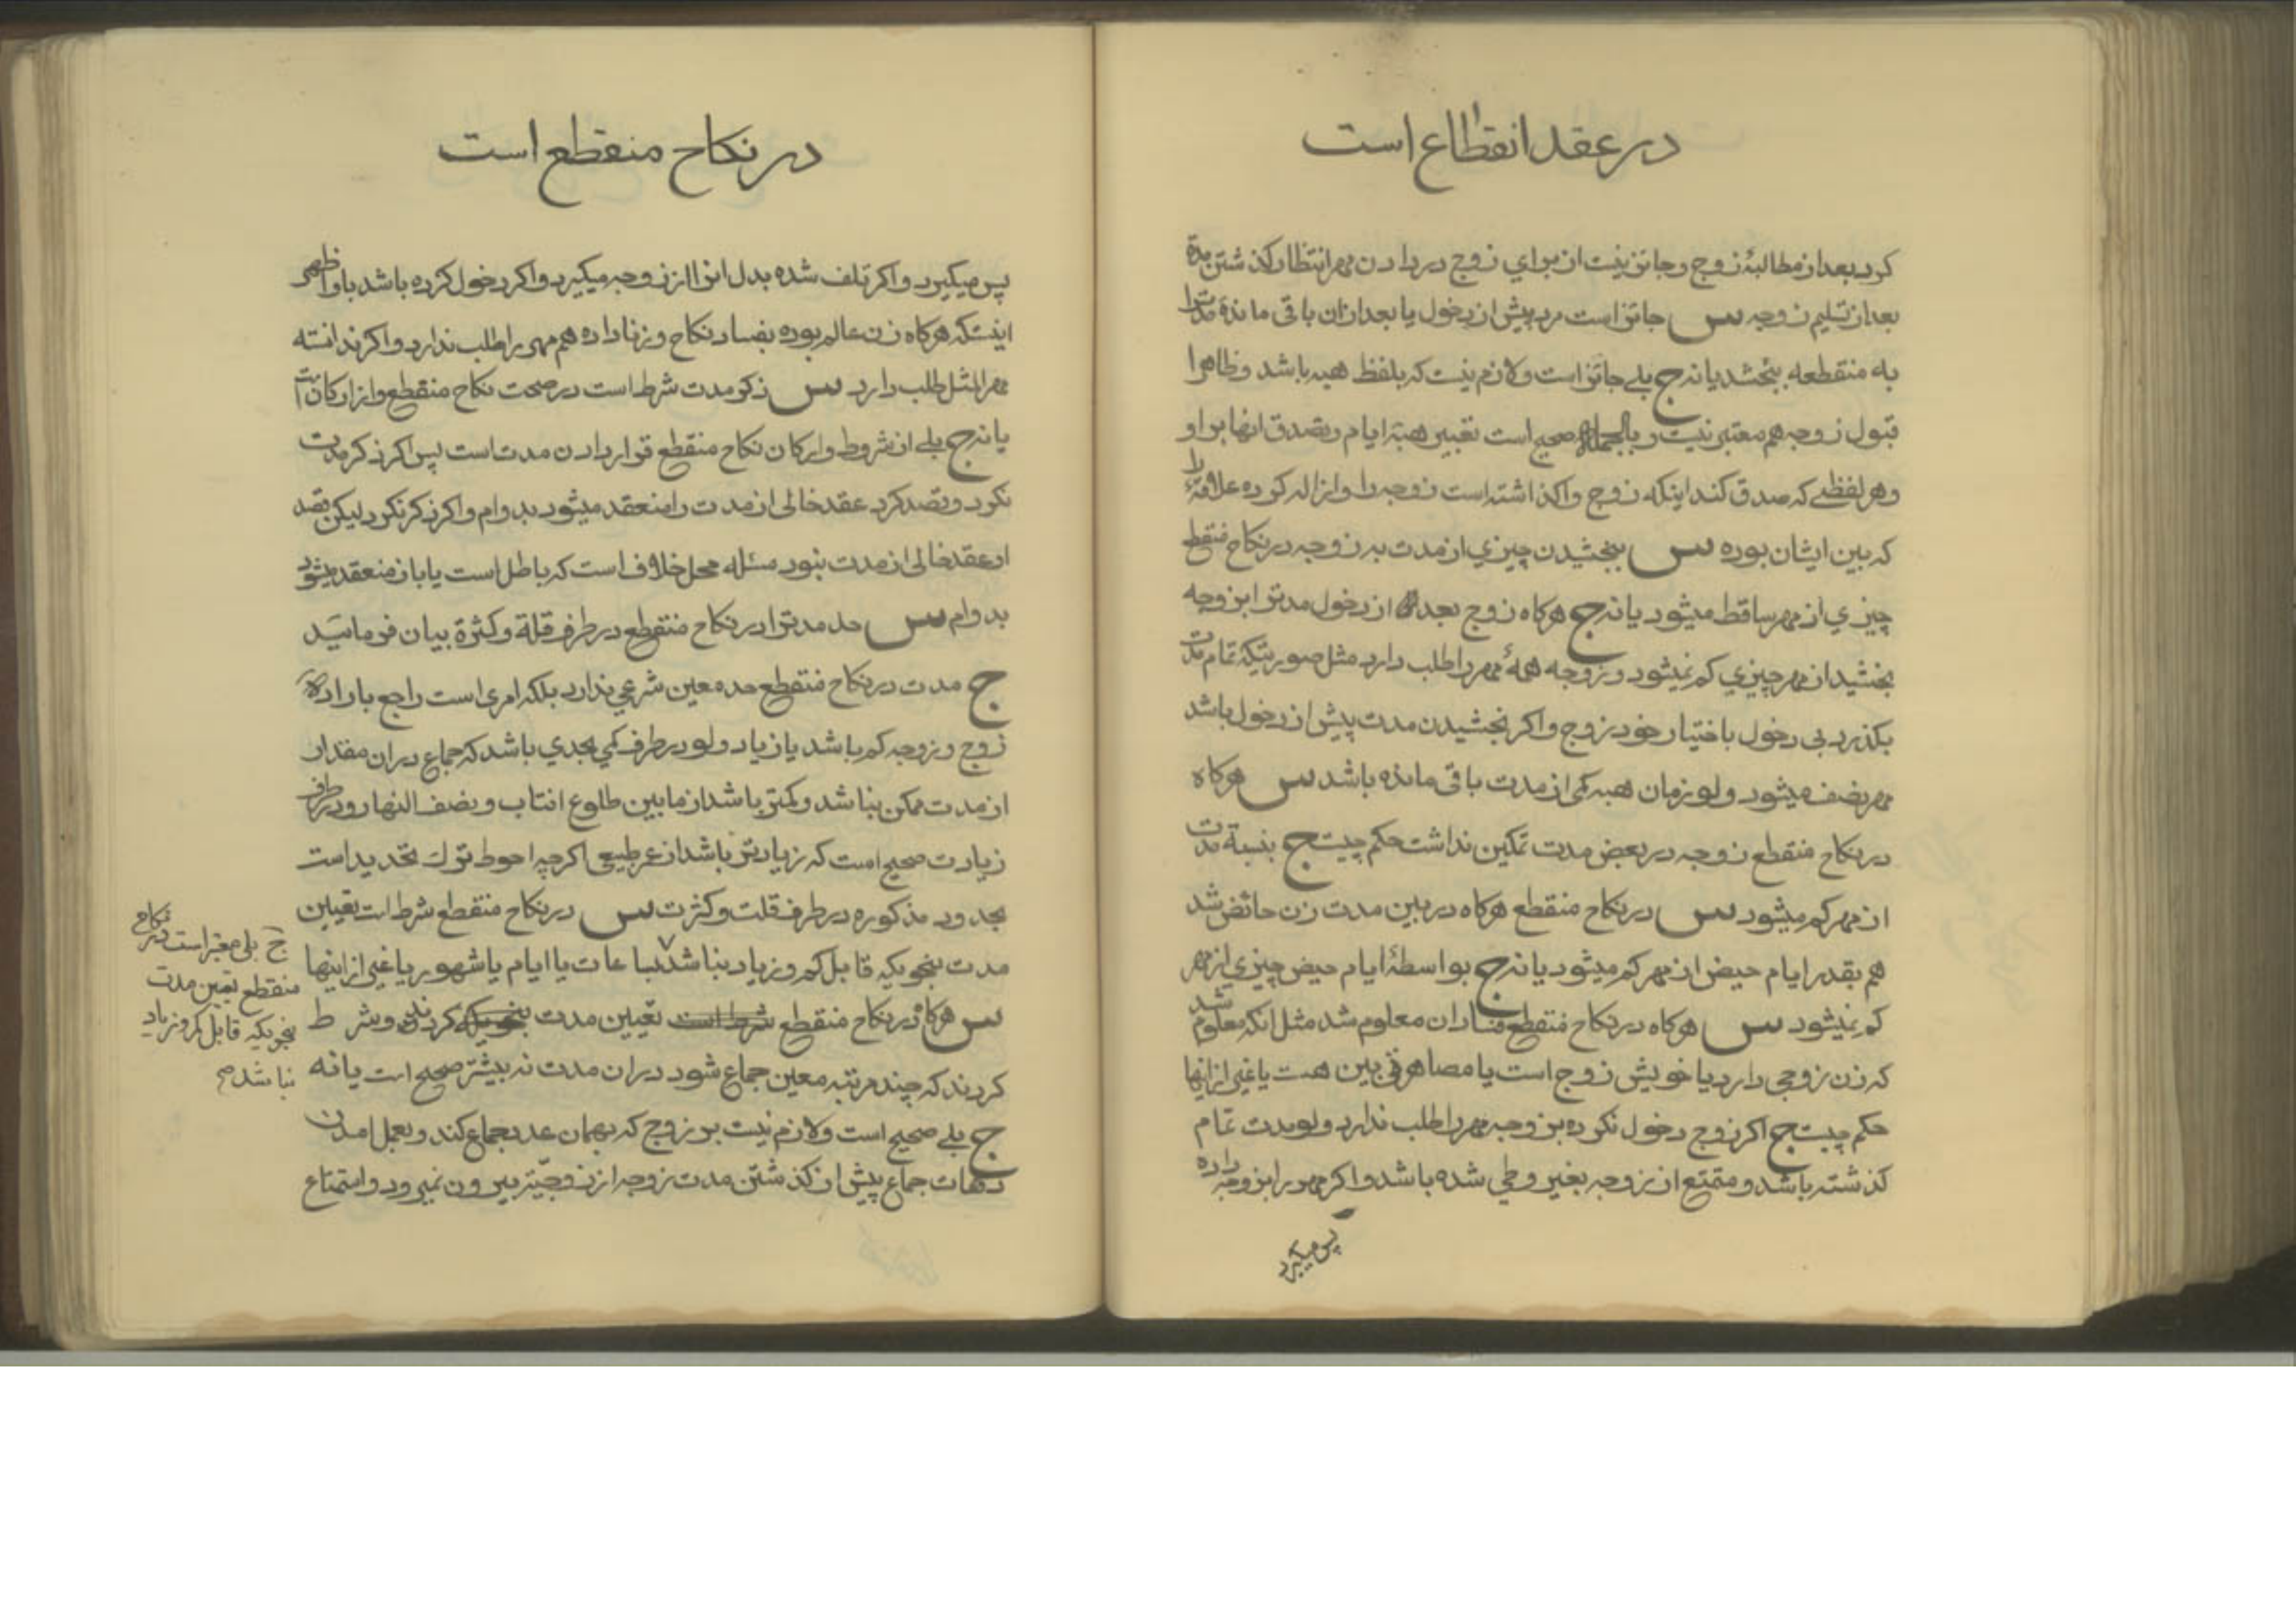 در عقد انقطاع است
کرد بعد از مطالبهٔ زوج و جائز نیست از برای زوج در دادن مهر انتظار کذشتن مدة
بعد از تسلیم زوجه س جائز است مرد پیش از دخول یا بعد از ان باقی ماندهٔ مدترا
به منقطعه بنخشد یا نه ج بلے جائز است و لازم نیست که بلفظ هبه باشد و ظاهرا
قبول زوجه هم معتبر نیست و بالجمله صحیح است تعبیر هبهٔ ایام و تصدق انها بر او
و هر لفظے که صدق کند اینکه زوج واکذاشته است زوجه را و ازاله کرده علاقهٔ را
که بین ایشان بوده س بنخشیدن چیزي از مدت به زوجه در نکاح منقطع
چیزي از مهر ساقط میشود یا نه ج هرکاه زوج بعد از دخول مدترا بزوجه
بنخشید از مهر چیزي کم نمیشود و زوجه همهٔ مهر را طلب دارد مثل صورتیکه تمام مدت
بکذرد بی دخول باختیار خود زوج و اکر بخشیدن مدت پیش از دخول باشد
مهر نصف میشود ولو زمان هبه کمی از مدت باقی مانده باشد س هرکاه
در نکاح منقطع زوجه در بعض مدت تمکین نداشت حکم چیست ج بنسبة مدت
از مهر کم میشود س در نکاح منقطع هرکاه در بین مدت زن حائض شد
هم بقدر ایام حیض از مهر کم میشود یا نه ج بواسطهٔ ایام حیض چیزي از مهر
کم نمیشود س هرکاه در نکاح منقطع فساد ان معلوم شد مثل انکه معلوم شد
که زن زوجی دارد یا خویش زوج است یا مصاهرتی بین هست یا غیر از اینها
حکم چیست ج اکر زوج دخول نکرده بزوجه مهر را طلب ندارد ولو مدت تمام
کذشته باشد و متمتع از زوجه بغیر وطی شده باشد و اکر مهر را بزوجه داده
پس میکیرد
در نکاح منقطع است
پس میکیرد و اکر تلف شده بدل انرا از زوجه میکیرد و اکر دخول کرده باشد باو اظهر
اینستکه هرکاه زن عالم بوده بفساد نکاح و زنا داده هم مهر را طلب ندارد و اکر ندانسته
مهر المثل طلب دارد س ذکر مدت شرط است در صحت نکاح منقطع و از ارکان است
یا نه ج بلے از شروط و ارکان نکاح منقطع قرار دادن مدت است پس اکر ذکر مدت
نکرد و قصد کرد عقد خالی از مدت را منعقد میشود بدوام و اکر ذکر نکرد لیکن قصد
او عقد خالی از مدت نبود مسئله محل خلاف است که باطل است یا باز منعقد میشود
بدوام س حد مدترا در نکاح منقطع در طرف قلة و کثرة بیان فرمائید
ج مدت در نکاح منقطع حد معین شرعي ندارد بلکه امری است راجع باراده
زوج و زوجه کم باشد یا زیاد ولو در طرف کمي بحدي باشد که جماع در ان مقدار
از مدت ممکن نباشد و کمتر باشد از مابین طلوع افتاب و نصف النهار و در طرف
زیادت صحیح است که زیادتر باشد از عمر طبیعی اکرچه احوط ترك تحدید است
بحدود مذکوره در طرف قلت و کثرت س در نکاح منقطع شرط است تعیین
مدت بنحویکه قابل کم و زیاد نباشد بساعات یا ایام یا شهور یا غیر از اینها
س هرکاه در نکاح منقطع شرط است تعیین مدت بنحویکه کردند و شرط
کردند که چند مرتبه معین جماع شود در ان مدت نه بیشتر صحیح است یا نه
ج بلے صحیح است و لازم نیست بر زوج که بهمان عدد جماع کند و بعمل امدن
دفعات جماع پیش از کذشتن مدت زوجه از زوجیّت بیرون نمیرود و استمتاع
ج بلی معتبر است در نکاح
منقطع تعیین مدت
بنحویکه قابل کم و زیاد
نباشد صح